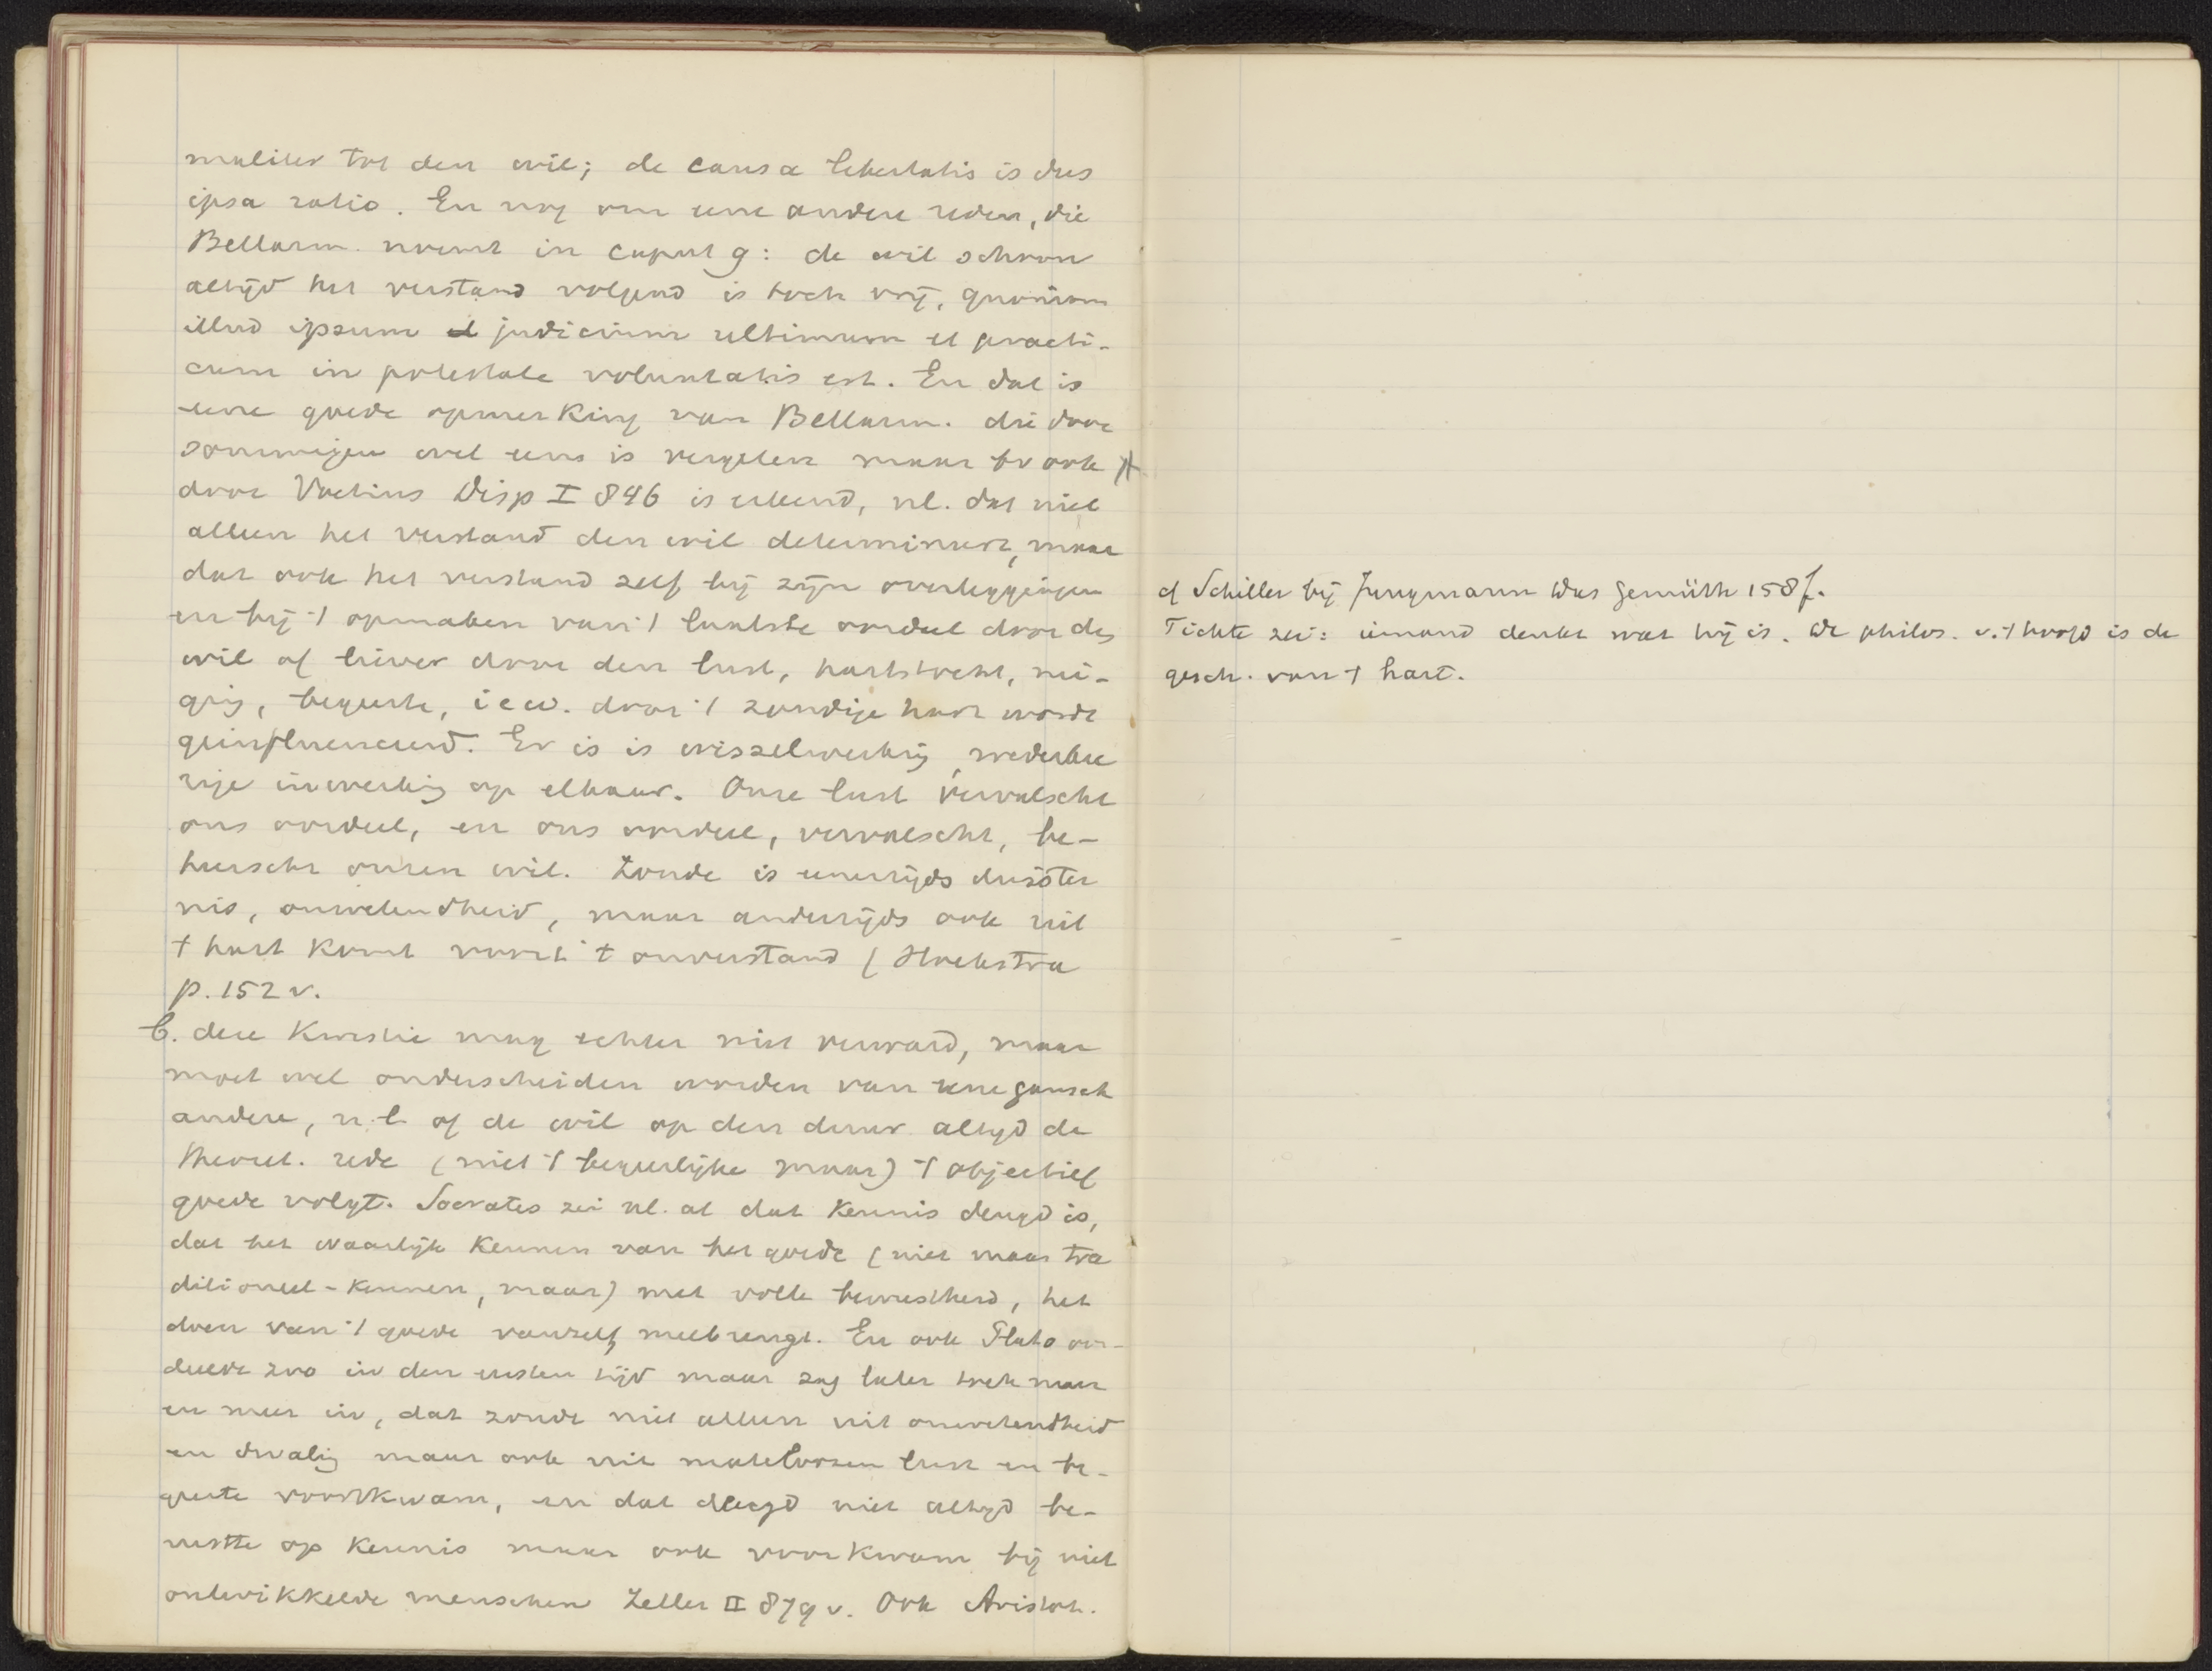 maliter tot den wil; de causa libertatis is dus
ipsa ratio. En nog om eene andere reden, die
Bellarm. noemt in caput 9: de wil schoon
altijd het verstand volgend is toch vrij, quoniam
illud ipsum judicium ultimum et practi-
cum in potestate voluntatis est. En dat is
eene goede opmerking van Bellarm. die door
sommigen wel eens is vergeten maar bv ook
door Voetius Disp I 846 is erkend, nl. dat niet
alleen het verstand den wil determineert, maar
dat ook het verstand zelf bij zijn overleggingen
en bij 't opmaken van 't laatste oordeel door den
wil of liever door den lust, hartstocht, nei-
ging, begeerte, i e w. door 't zondige hart wordt
geinfluenceerd. Er is is wisselwerking, wederkee
rige inwerking op elkaar. Onze lust vervalscht
ons oordeel, en ons oordeel, vervalscht, be-
heerscht onzen wil. Zonde is eenerzijds duister
nis, onwetendheid, maar anderzijds ook uit
t hart komt voort 't onverstand (Hoekstra
p. 152 v.
b. deze kwestie mag echter niet verward, maar
moet wel onderscheiden worden van eene gansch
andere, n.l. of de wil op den duur altijd de
theoret. rede (niet 't begeerlijke maar) 't objectief
goede volgt. Socrates zei nl. al dat kennis deugd is,
dat het waarlijk kennen van het goede (niet maar tra
ditioneel-kennen, maar) met volle bewustheid, het
doen van 't goede vanzelf meebrengt. En ook Plato oor-
deelde zoo in den eersten tijd maar zag later toch meer
en meer in, dat zonde niet alleen uit onwetendheid
en dwaling maar ook uit mateloozen lust en be-
geerte voortkwam, en dat deugd niet altijd be-
rustte op kennis maar ook voorkwam bij niet
ontwikkelde menschen Zeller II 879 v. Ook Aristot.
cf Schiller bij Jungmann Das Gemüth 158 f.
Fichte zei: iemand denkt wat hij is. De philos. v. 't hoofd is de
gesch. van 't hart.